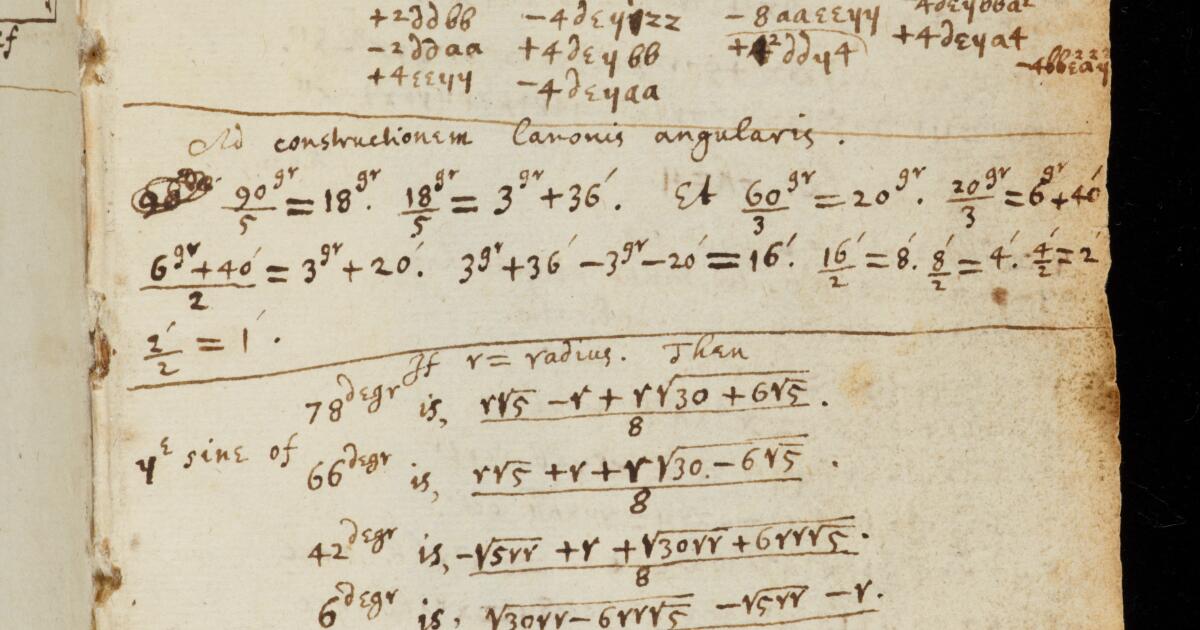 +2ddbb −4deyyzz −8aaeeyy −4deybba²
−2ddaa +4deybb +4²ddy4 +4deya4
+4eeyy −4deyaa
Ad constructionem Canonis angularis.
90^gr/5 = 18^gr. 18^gr/5 = 3^gr + 36′. Et 60^gr/3 = 20^gr. 20^gr/3 = 6^gr + 40′
6^gr + 40′/2 = 3^gr + 20′. 3^gr + 36′ − 3^gr − 20′ = 16′. 16′/2 = 8′. 8′/2 = 4′. 4′/2 = 2′
2′/2 = 1′.
If r = radius. Then
78^degr is, r√5 − r + r√30 + 6√5 / 8.
y^e sine of 66^degr is, r√5 + r + r√30 − 6√5 / 8.
42^degr is, −√5rr + r + √30rr + 6rr√5 / 8.
6^degr is, √30rr − 6rr√5 − √5rr − r.